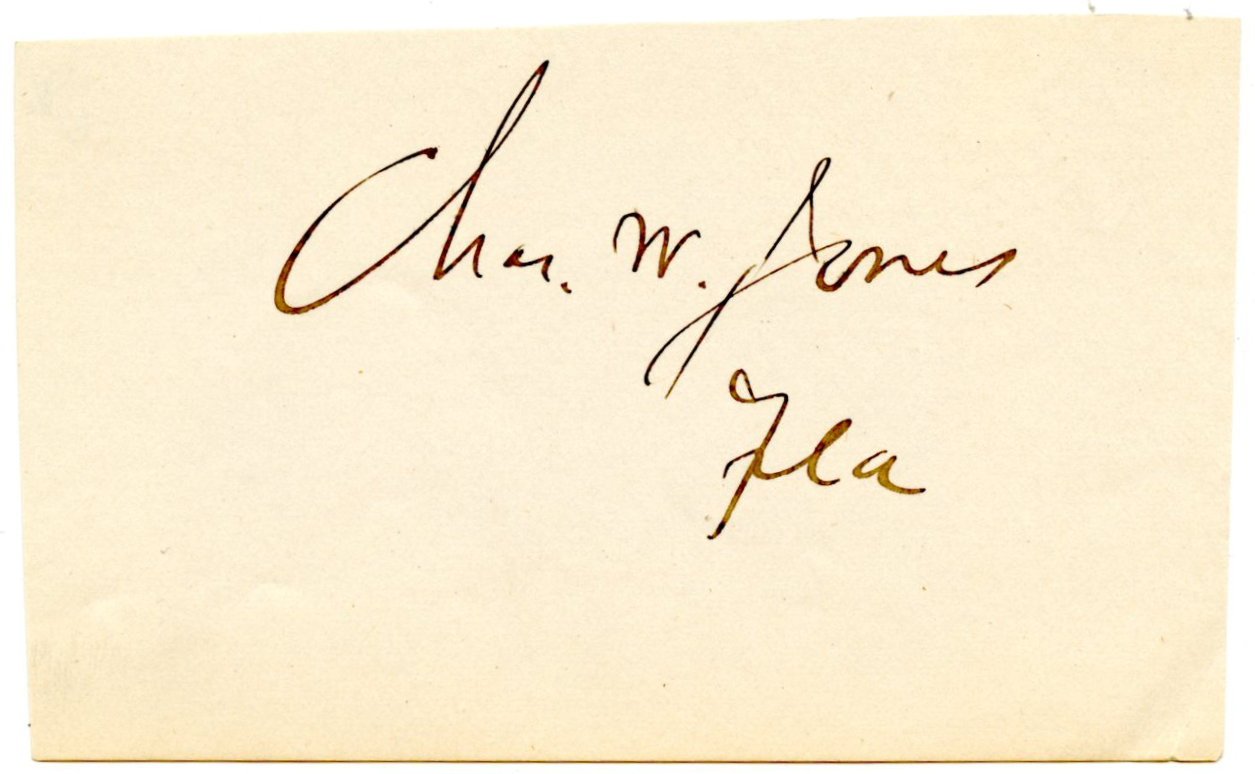 Chas. W. Jones
Fla